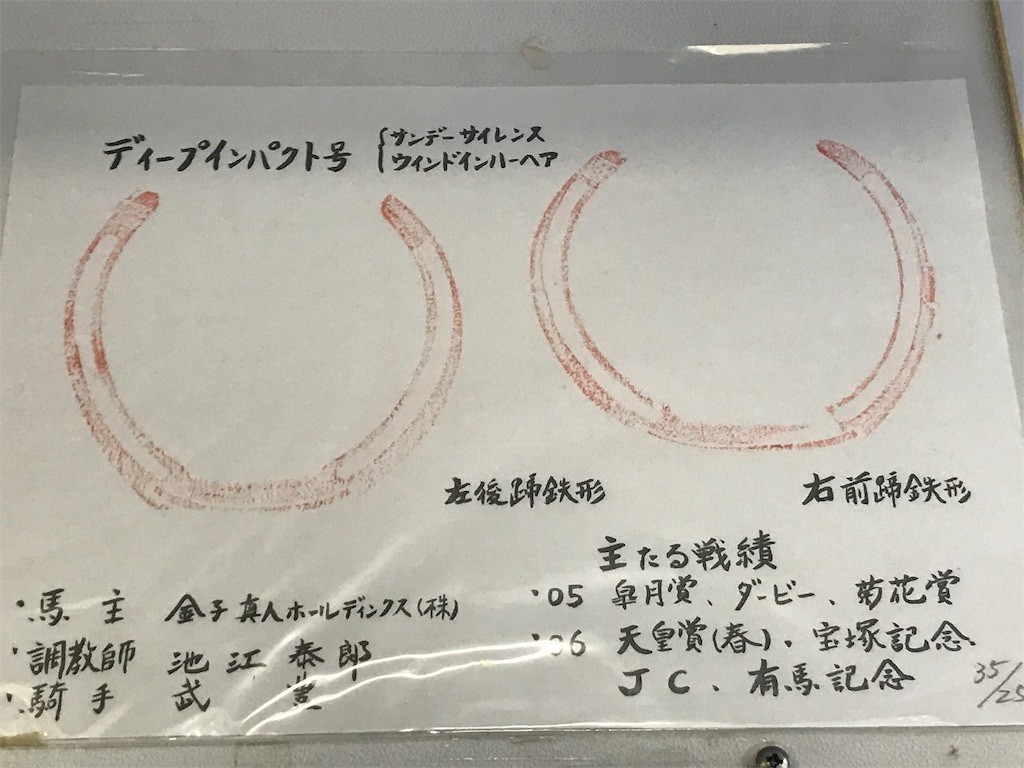 ディープインパクト号
サンデーサイレンス
ウィンドインハーヘア
左後蹄鉄形
右前蹄鉄形
・馬主 金子真人ホールディングス(株)
・調教師 池江泰郎
・騎手 武豊
主たる戦績
'05 皐月賞、ダービー、菊花賞
'06 天皇賞(春)、宝塚記念、
JC、有馬記念
35/25